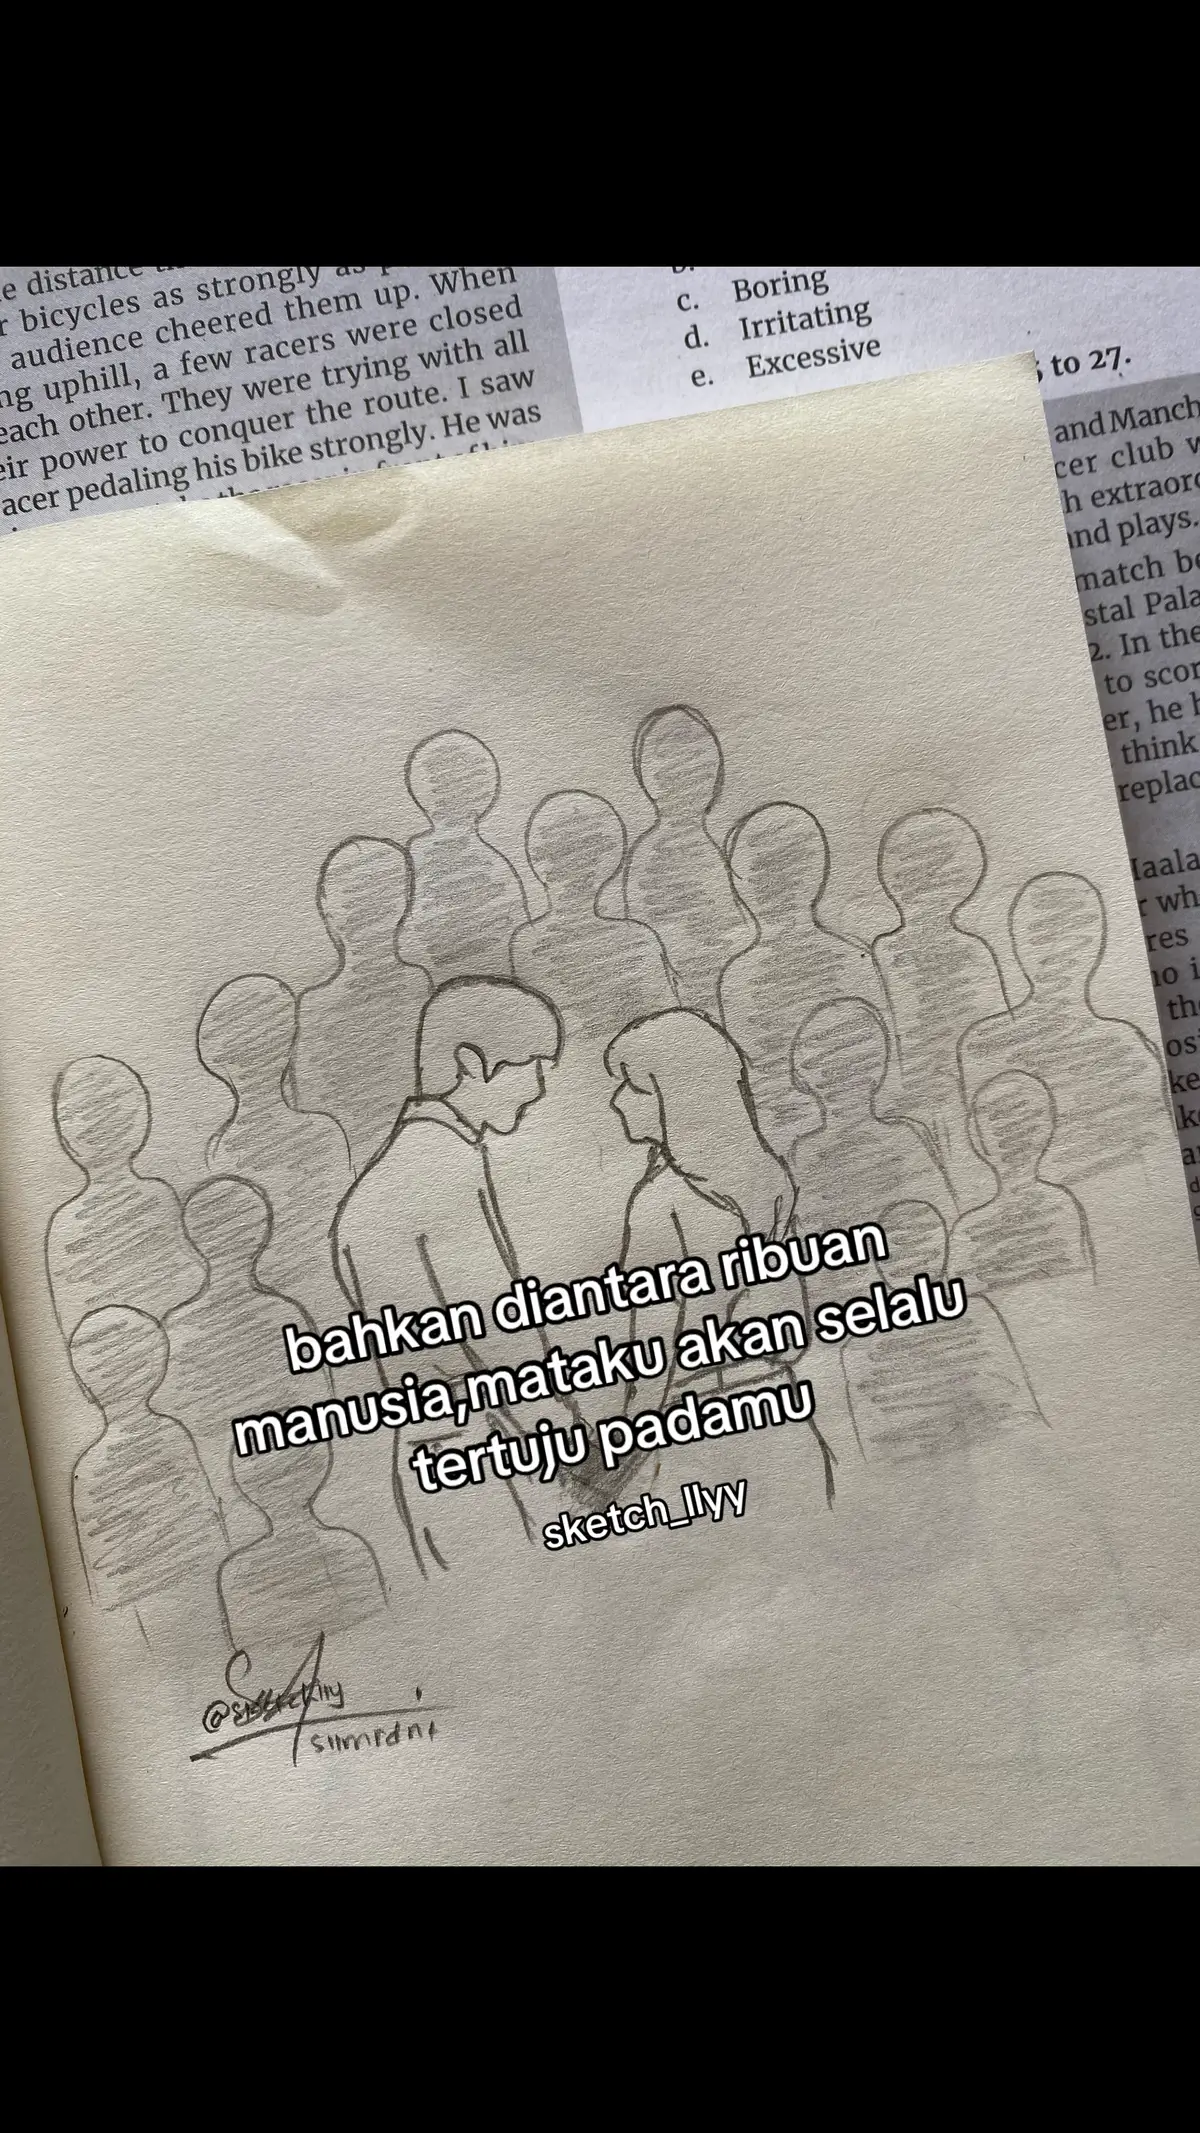 e distance
r bicycles as strongly as
audience cheered them up. When
ng uphill, a few racers were closed
each other. They were trying with all
eir power to conquer the route. I saw
acer pedaling his bike strongly. He was
c. Boring
d. Irritating
e. Excessive
to 27.
and Manch
cer club w
h extraord
and plays.
match be
stal Pala
2. In the
to scor
er, he h
think
replac
Iaala
r wh
res
no i
the
os
ke
bahkan diantara ribuan
manusia,mataku akan selalu
tertuju padamu
sketch_llyy
siimrdni